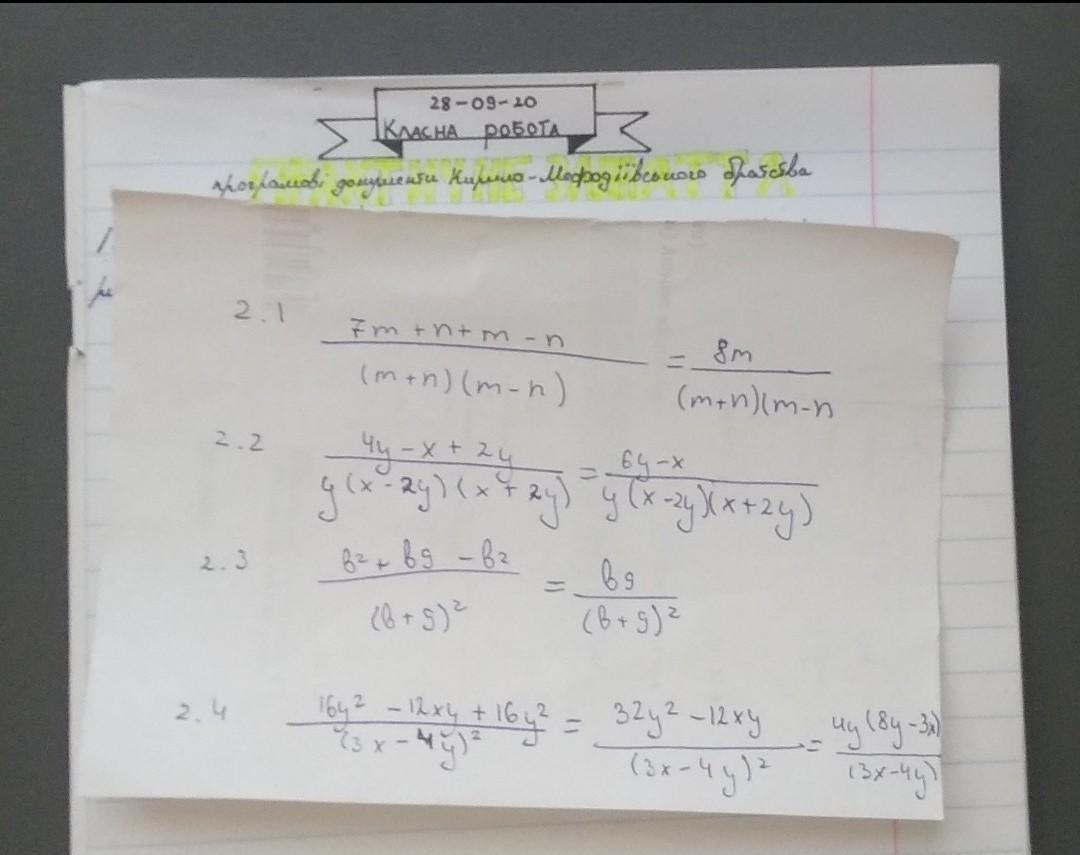 28-09-20
КЛАСНА РОБОТА
програмові документи Кирило-Мефодіївського братства
2.1 7m + n + m - n / (m+n)(m-n) = 8m / (m+n)(m-n
2.2 4y - x + 2y / y(x-2y)(x+2y) = 6y-x / y(x-2y)(x+2y)
2.3 b² + b9 - b² / (b+9)² = b9 / (b+9)²
2.4 16y² - 12xy + 16y² / (3x-4y)² = 32y² - 12xy / (3x-4y)² = 4y(8y-3x) / (3x-4y)